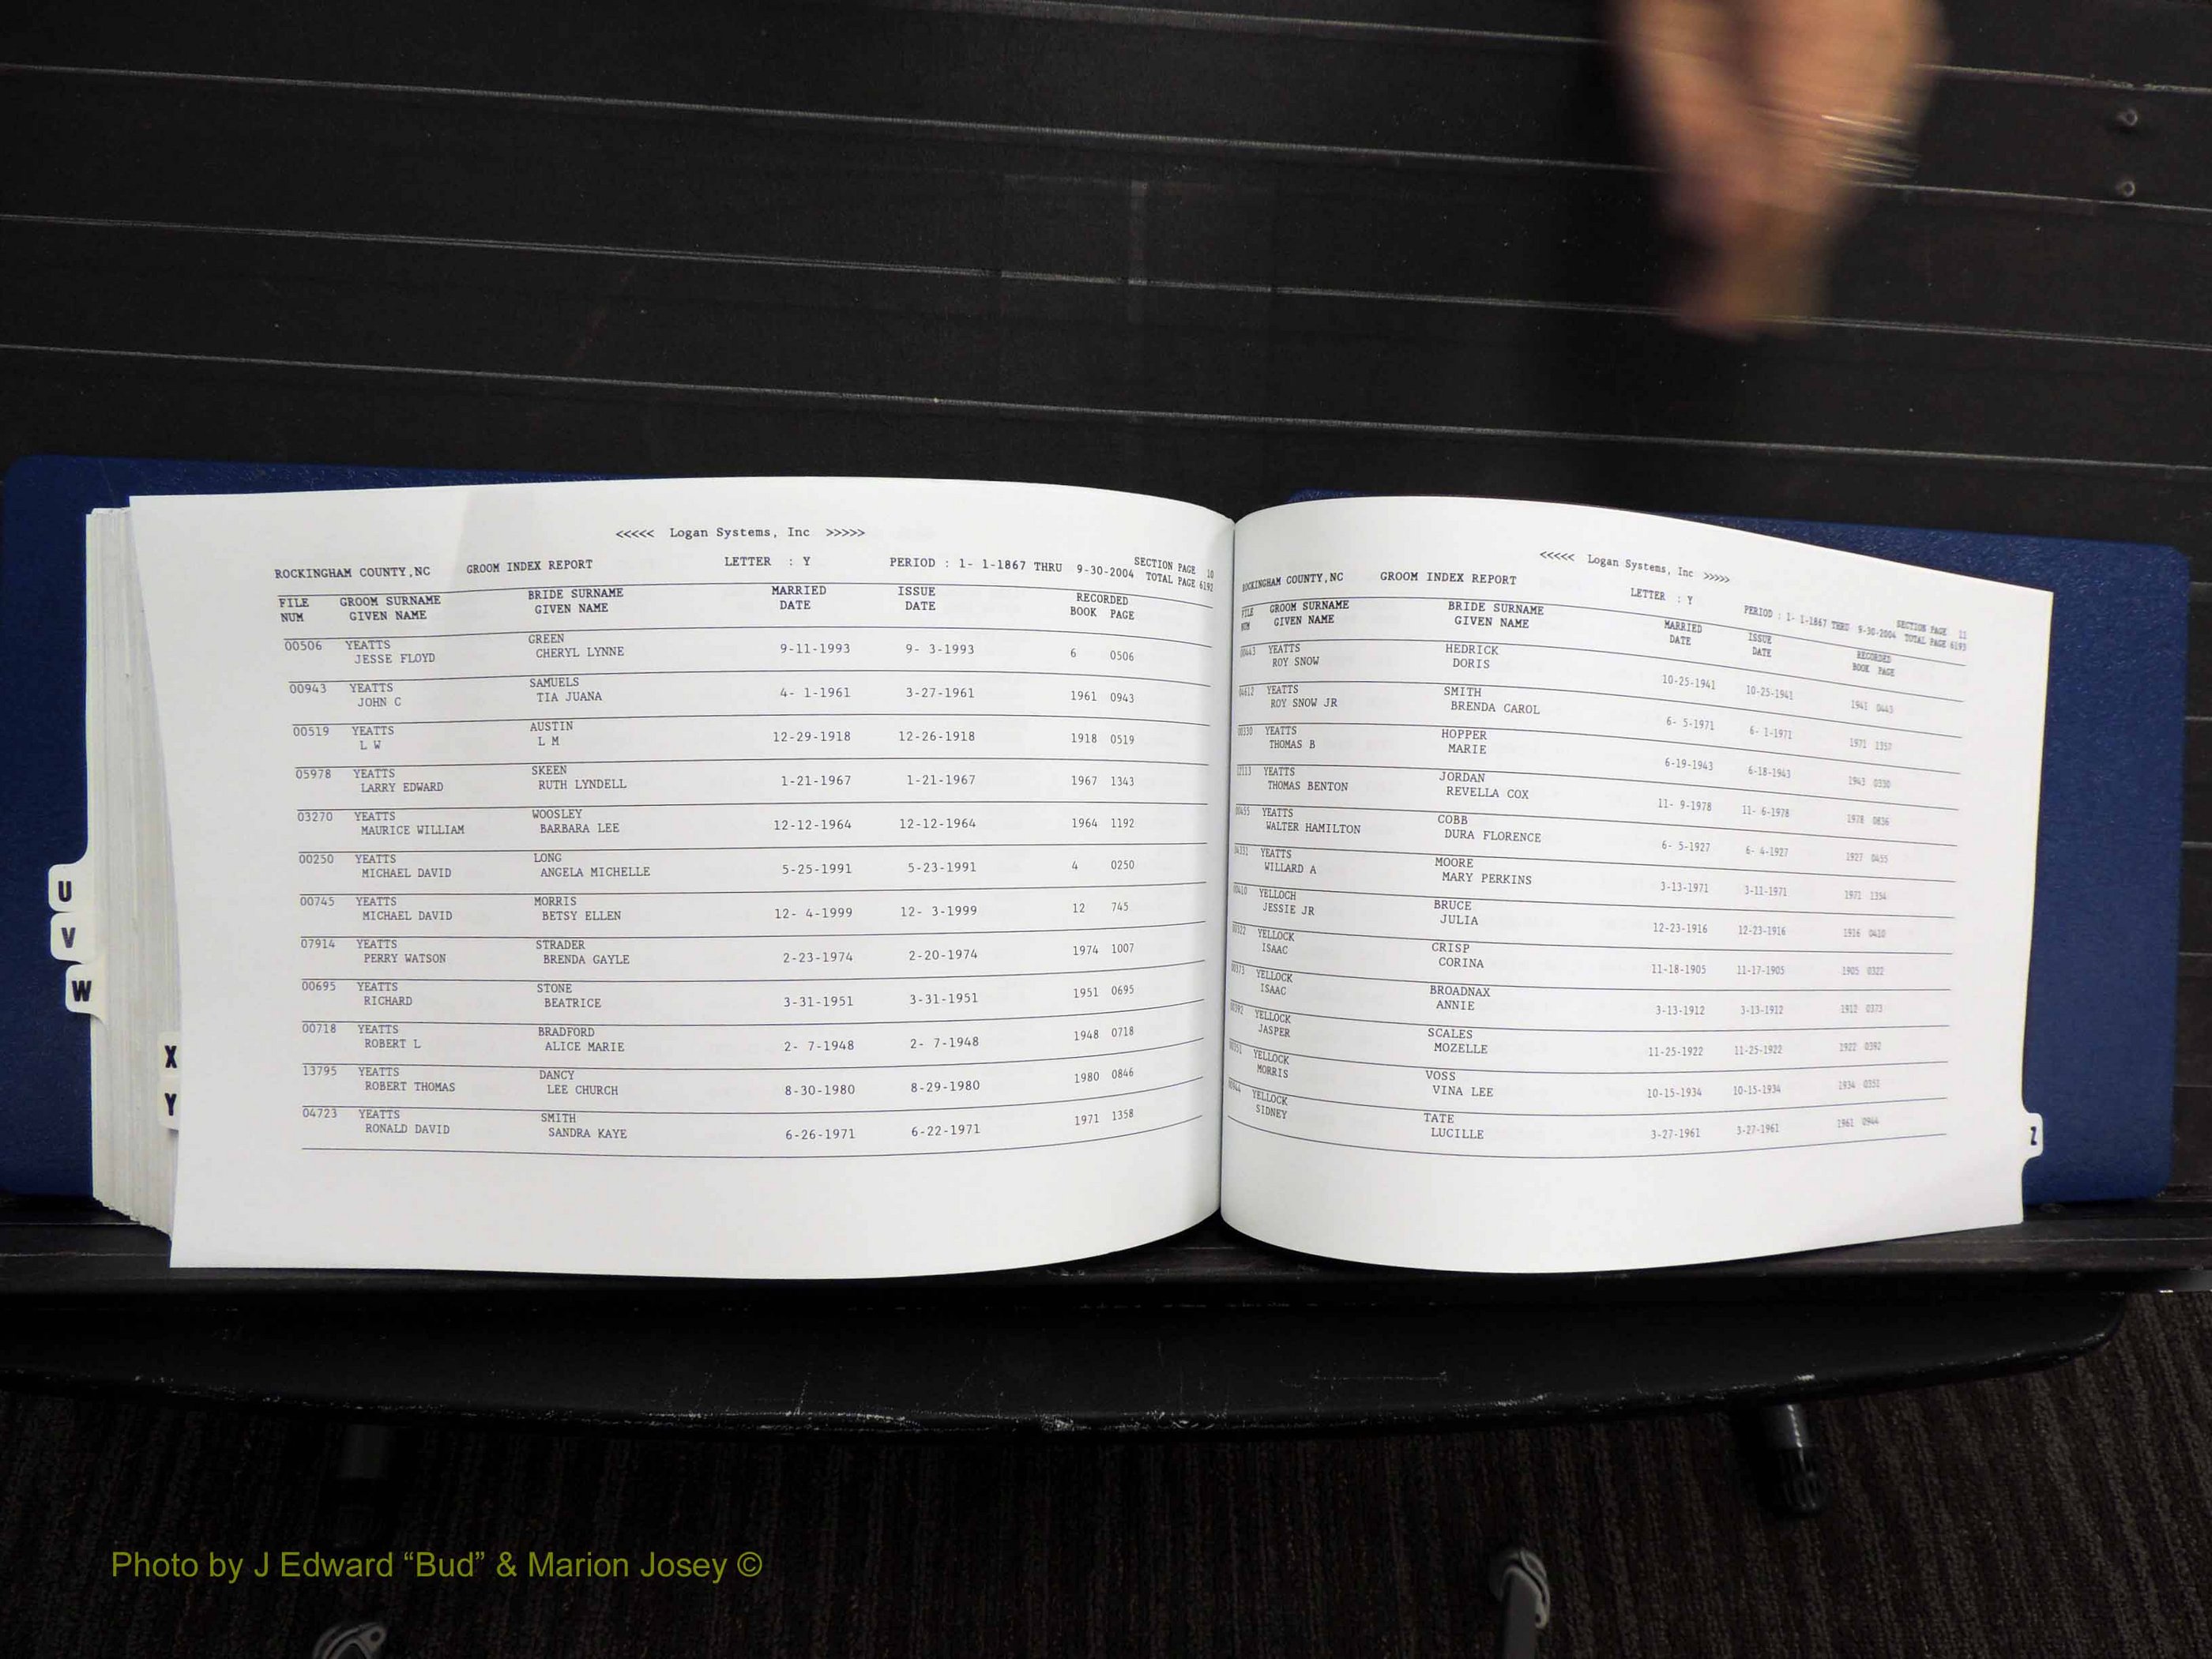 <<<<< Logan Systems, Inc >>>>>
ROCKINGHAM COUNTY,NC GROOM INDEX REPORT LETTER : Y PERIOD : 1- 1-1867 THRU 9-30-2004 SECTION PAGE 10
TOTAL PAGE 6192
FILE GROOM SURNAME BRIDE SURNAME MARRIED ISSUE RECORDED
NUM GIVEN NAME GIVEN NAME DATE DATE BOOK PAGE
00506 YEATTS GREEN 9-11-1993 9- 3-1993 6 0506
JESSE FLOYD CHERYL LYNNE
00943 YEATTS SAMUELS 4- 1-1961 3-27-1961 1961 0943
JOHN C TIA JUANA
00519 YEATTS AUSTIN 12-29-1918 12-26-1918 1918 0519
L W L M
05978 YEATTS SKEEN 1-21-1967 1-21-1967 1967 1343
LARRY EDWARD RUTH LYNDELL
03270 YEATTS WOOSLEY 12-12-1964 12-12-1964 1964 1192
MAURICE WILLIAM BARBARA LEE
00250 YEATTS LONG 5-25-1991 5-23-1991 4 0250
MICHAEL DAVID ANGELA MICHELLE
00745 YEATTS MORRIS 12- 4-1999 12- 3-1999 12 745
MICHAEL DAVID BETSY ELLEN
07914 YEATTS STRADER 2-23-1974 2-20-1974 1974 1007
PERRY WATSON BRENDA GAYLE
00695 YEATTS STONE 3-31-1951 3-31-1951 1951 0695
RICHARD BEATRICE
00718 YEATTS BRADFORD 2- 7-1948 2- 7-1948 1948 0718
ROBERT L ALICE MARIE
13795 YEATTS DANCY 8-30-1980 8-29-1980 1980 0846
ROBERT THOMAS LEE CHURCH
04723 YEATTS SMITH 6-26-1971 6-22-1971 1971 1358
RONALD DAVID SANDRA KAYE
U
V
W
X
Y
<<<<< Logan Systems, Inc >>>>>
ROCKINGHAM COUNTY,NC GROOM INDEX REPORT LETTER : Y PERIOD : 1- 1-1867 THRU 9-30-2004 SECTION PAGE 11
TOTAL PAGE 6193
FILE GROOM SURNAME BRIDE SURNAME MARRIED ISSUE RECORDED
NUM GIVEN NAME GIVEN NAME DATE DATE BOOK PAGE
YEATTS HEDRICK 10-25-1941 10-25-1941 1941
ROY SNOW DORIS
YEATTS SMITH 6- 5-1971 6- 1-1971 1971 1357
ROY SNOW JR BRENDA CAROL
YEATTS HOPPER 6-19-1943 6-18-1943 1943 0330
THOMAS B MARIE
YEATTS JORDAN 11- 9-1978 11- 6-1978 1978 0836
THOMAS BENTON REVELLA COX
YEATTS COBB 6- 5-1927 6- 4-1927 1927 0455
WALTER HAMILTON DURA FLORENCE
YEATTS MOORE 3-13-1971 3-11-1971 1971 1354
WILLARD A MARY PERKINS
YELLOCH BRUCE 12-23-1916 12-23-1916 1916 0410
JESSIE JR JULIA
YELLOCK CRISP 11-18-1905 11-17-1905 1905 0322
ISAAC CORINA
YELLOCK BROADNAX 3-13-1912 3-13-1912 1912 0373
ISAAC ANNIE
YELLOCK SCALES 11-25-1922 11-25-1922 1922 0392
JASPER MOZELLE
YELLOCK VOSS 10-15-1934 10-15-1934 1934
MORRIS VINA LEE
YELLOCK TATE 3-27-1961 3-27-1961 1961 0944
SIDNEY LUCILLE
Z
Photo by J Edward “Bud” & Marion Josey ©